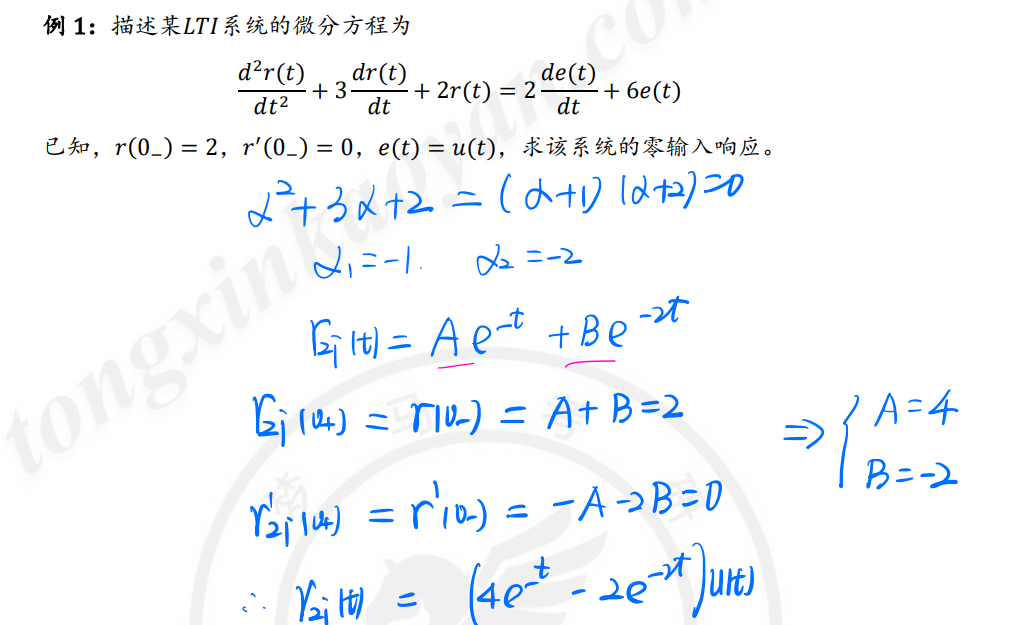 例 1：描述某LTI系统的微分方程为
d²r(t)/dt² + 3 dr(t)/dt + 2r(t) = 2 de(t)/dt + 6e(t)
已知，r(0₋) = 2，r′(0₋) = 0，e(t) = u(t)，求该系统的零输入响应。
α²+3α+2 = (α+1)(α+2)=0
α₁=-1. α₂=-2
r_zi(t) = Ae^-t + Be^-2t
r_zi(0₊) = r(0₋) = A+B=2
⇒ { A=4
B=-2
r'_zi(0₊) = r'(0₋) = -A-2B=0
∴ r_zi(t) = (4e^-t - 2e^-2t)u(t)
tongxinkaoyan.com